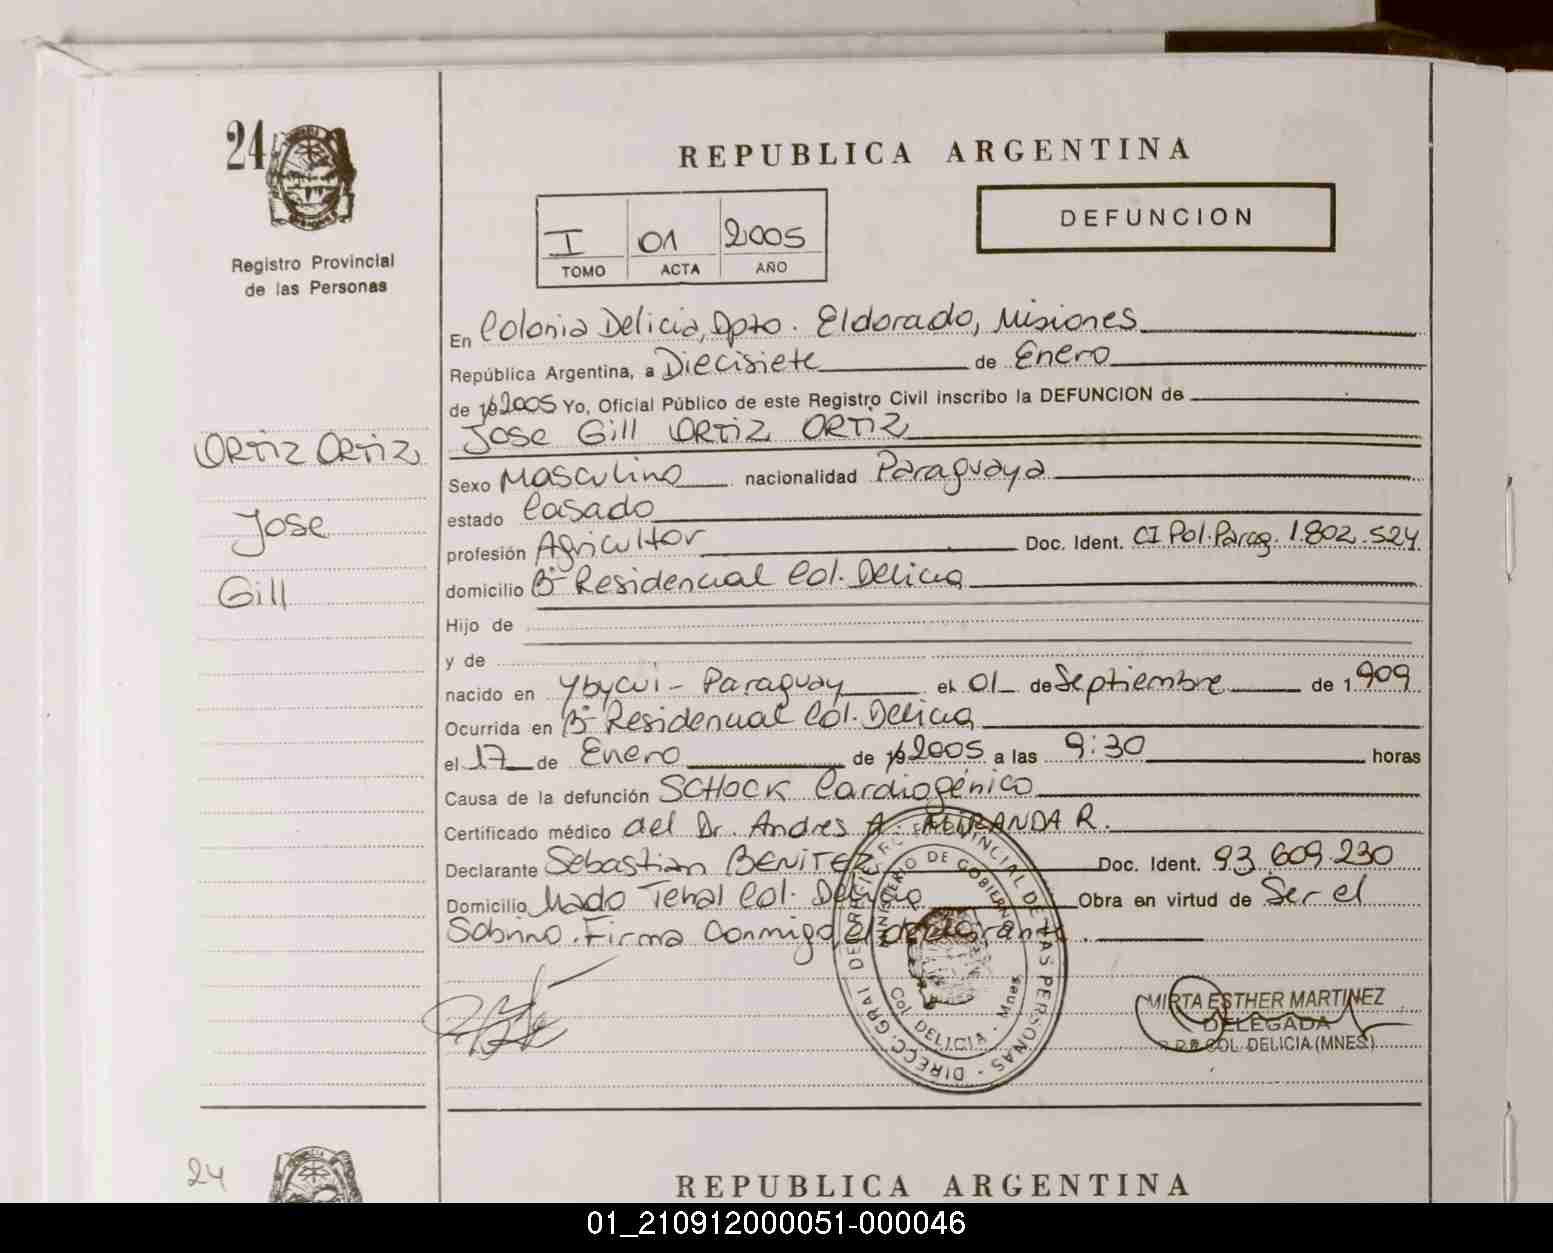 24
Registro Provincial
de las Personas
ORTIZ ORTIZ
Jose
Gill
REPUBLICA ARGENTINA
DEFUNCION
I 01 2005
TOMO ACTA AÑO
En Colonia Delicia, Dpto. Eldorado, Misiones
República Argentina, a Diecisiete de Enero
de 19 2005 Yo, Oficial Público de este Registro Civil inscribo la DEFUNCION de
Jose Gill ORTIZ ORTIZ
Sexo Masculino nacionalidad Paraguaya
estado Casado
profesión Agricultor Doc. Ident. CI Pol. Parag. 1.802.524
domicilio Bº Residencial Col. Delicia
Hijo de
y de
nacido en Ybycui - Paraguay el 01 de Septiembre de 1909
Ocurrida en Bº Residencial Col. Delicia
el 17 de Enero de 19 2005 a las 9:30 horas
Causa de la defunción SCHOCK Cardiogénico
Certificado médico del Dr. Andres A. MIRANDA R.
Declarante Sebastian BENITEZ Doc. Ident. 93.609.230
Domicilio Mado Tehal Col. Delicia Obra en virtud de Ser el
Sobrino. Firma conmigo el declarante.
DIRECC. GRAL DE REG. PROVINCIAL DE LAS PERSONAS
MINISTERIO DE GOBIERNO
Col. DELICIA - Mnes.
MIRTA ESTHER MARTINEZ
DELEGADA
R.P.P. COL. DELICIA (MNES.)
24
REPUBLICA ARGENTINA
01_210912000051-000046